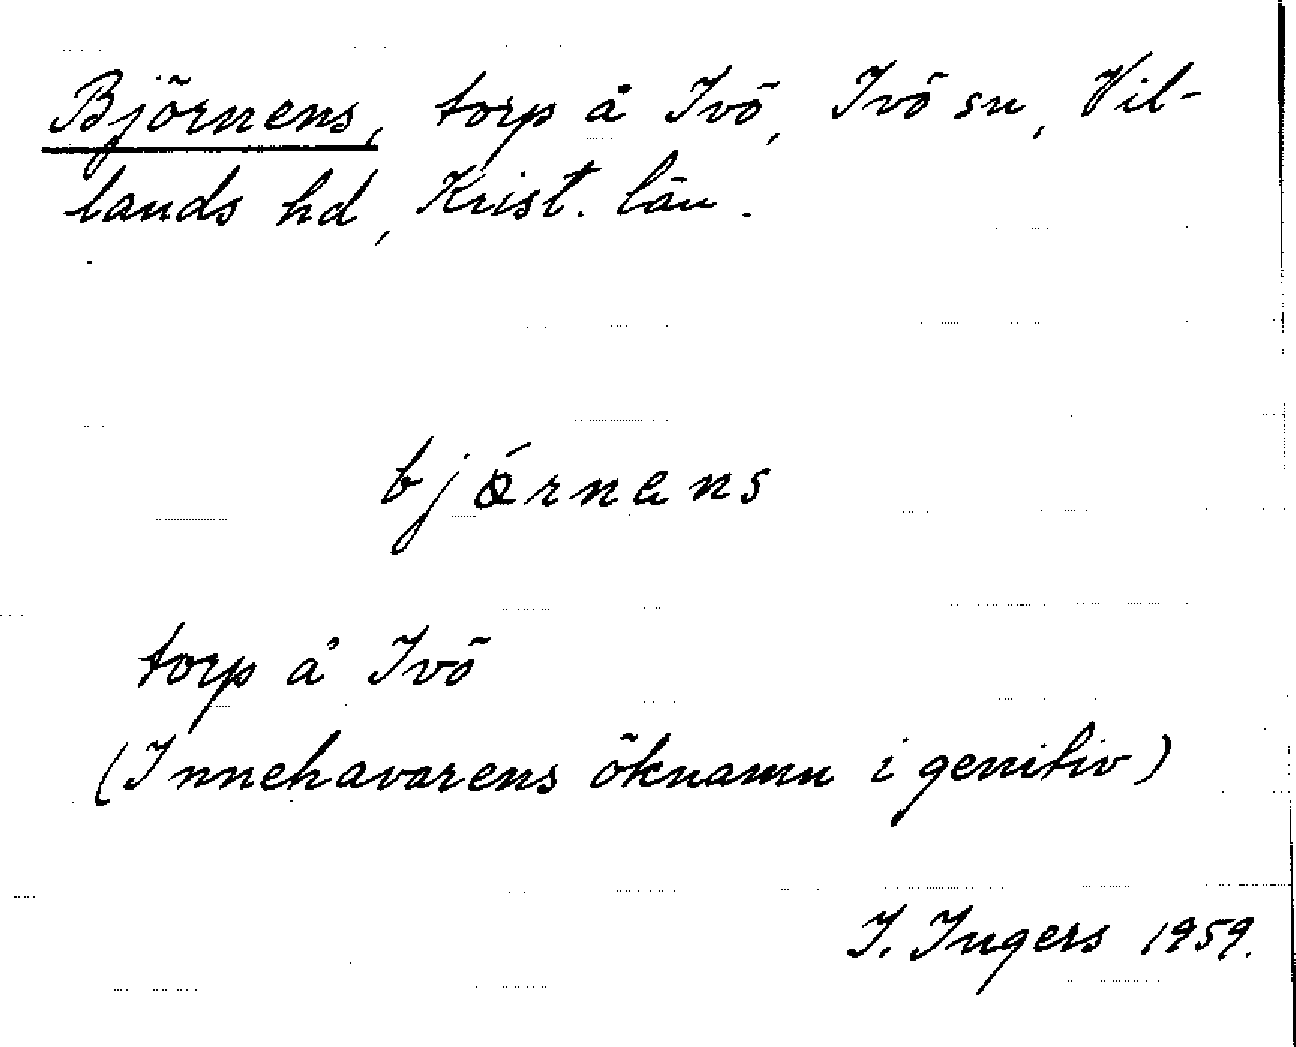 Björnens, torp å Ivö, Ivö sn, Vil-
lands hd, Krist. län.
bjǿrnens
torp å Ivö
(Innehavarens öknamn i genitiv)
I. Ingers 1959.